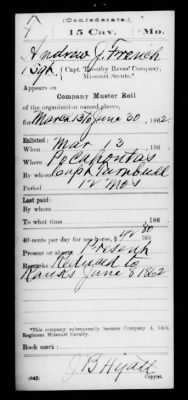 (Confederate.)
15 Cav. Mo.
Andrew J. French
(Capt. Timothy Reves' Company, Missouri Scouts.*
Appears on
Company Muster Roll
of the organization named above,
for March 13 to June 30, 1862.
Enlisted:
When Mar 13, 186 .
Where Pocahontas
By whom Capt Turnbull
Period 12 Mos
Last paid:
By whom
To what time , 186 .
40 cents per day for use horse,
Present or absent Present
Remarks Reduced to
Ranks June 3 1862
*This company subsequently became Company A, 15th Regiment Missouri Cavalry.
Book mark:
J B Hyatt
(642) Copyist.